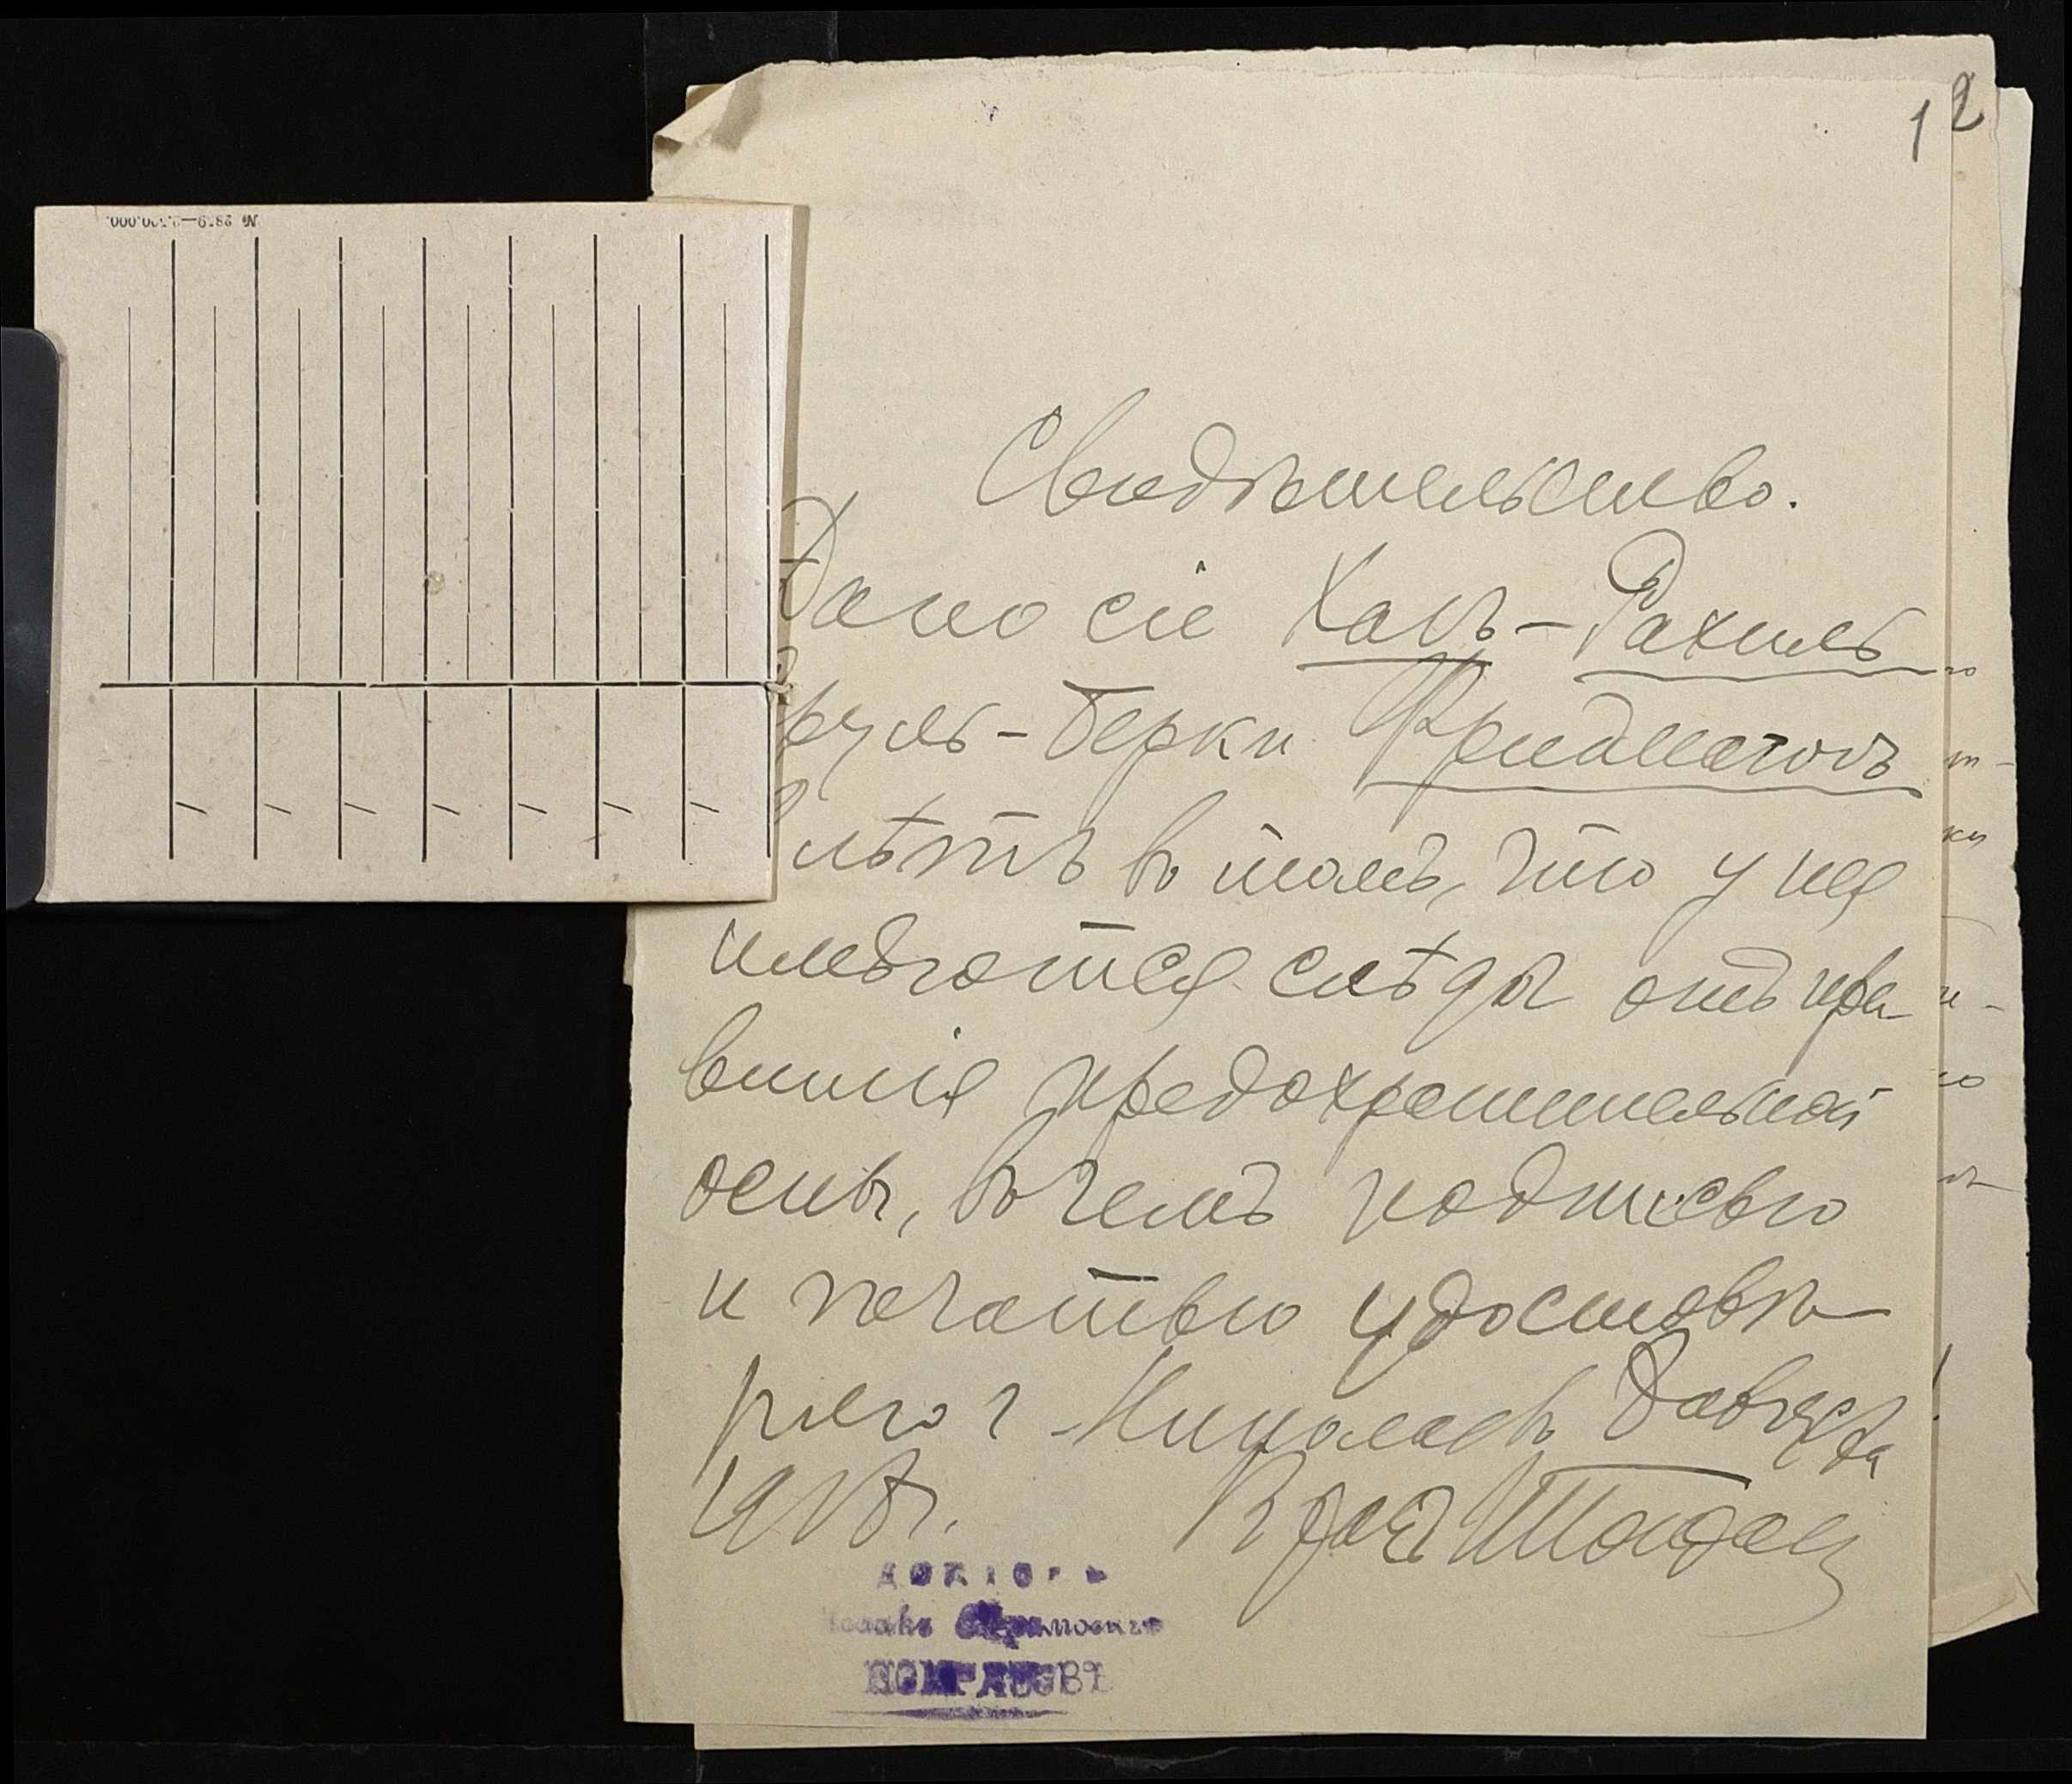 12
Свидѣтельство.
Дано сіе Хаѣ-Рахиль
Сруль-Берки Фридманъ
лѣтъ въ томъ, что у нея
имѣются слѣды отъ при
витія предохранительной
оспы, въ чемъ подписью
и печатью удостовѣ
ряю г. Николаевъ августа
Врачъ
ДОКТОРЪ